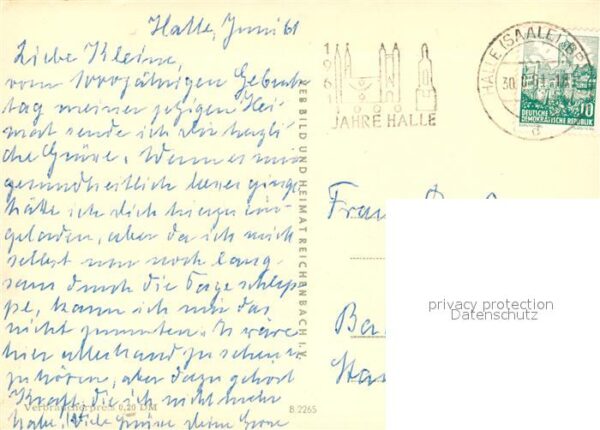 Halle, Juni 61
Liebe Kleine,
vom 1000jährigen Geburts-
tag meiner jetzigen Hei-
mat sende ich Dir herzli-
che Grüße. Wenn es mir
gesundheitlich besser ginge
hätte ich Dich hierzu ein-
geladen, aber da ich mich
selbst nur noch lang-
sam durch die Tage schlep-
pe, kann ich mir das
nicht zumuten. Es wäre
hier allerhand zu sehen u.
zu hören, aber dazu gehört
Kraft, die ich nicht mehr
habe. Viele Grüße deine
1961
1000
JAHRE HALLE
HALLE (SAALE)
30.6.61
10
DEUTSCHE
DEMOKRATISCHE REPUBLIK
VEB BILD UND HEIMAT REICHENBACH I. V.
Frau
privacy protection
Datenschutz
Verbraucherpreis 0,20 DM
B 2265